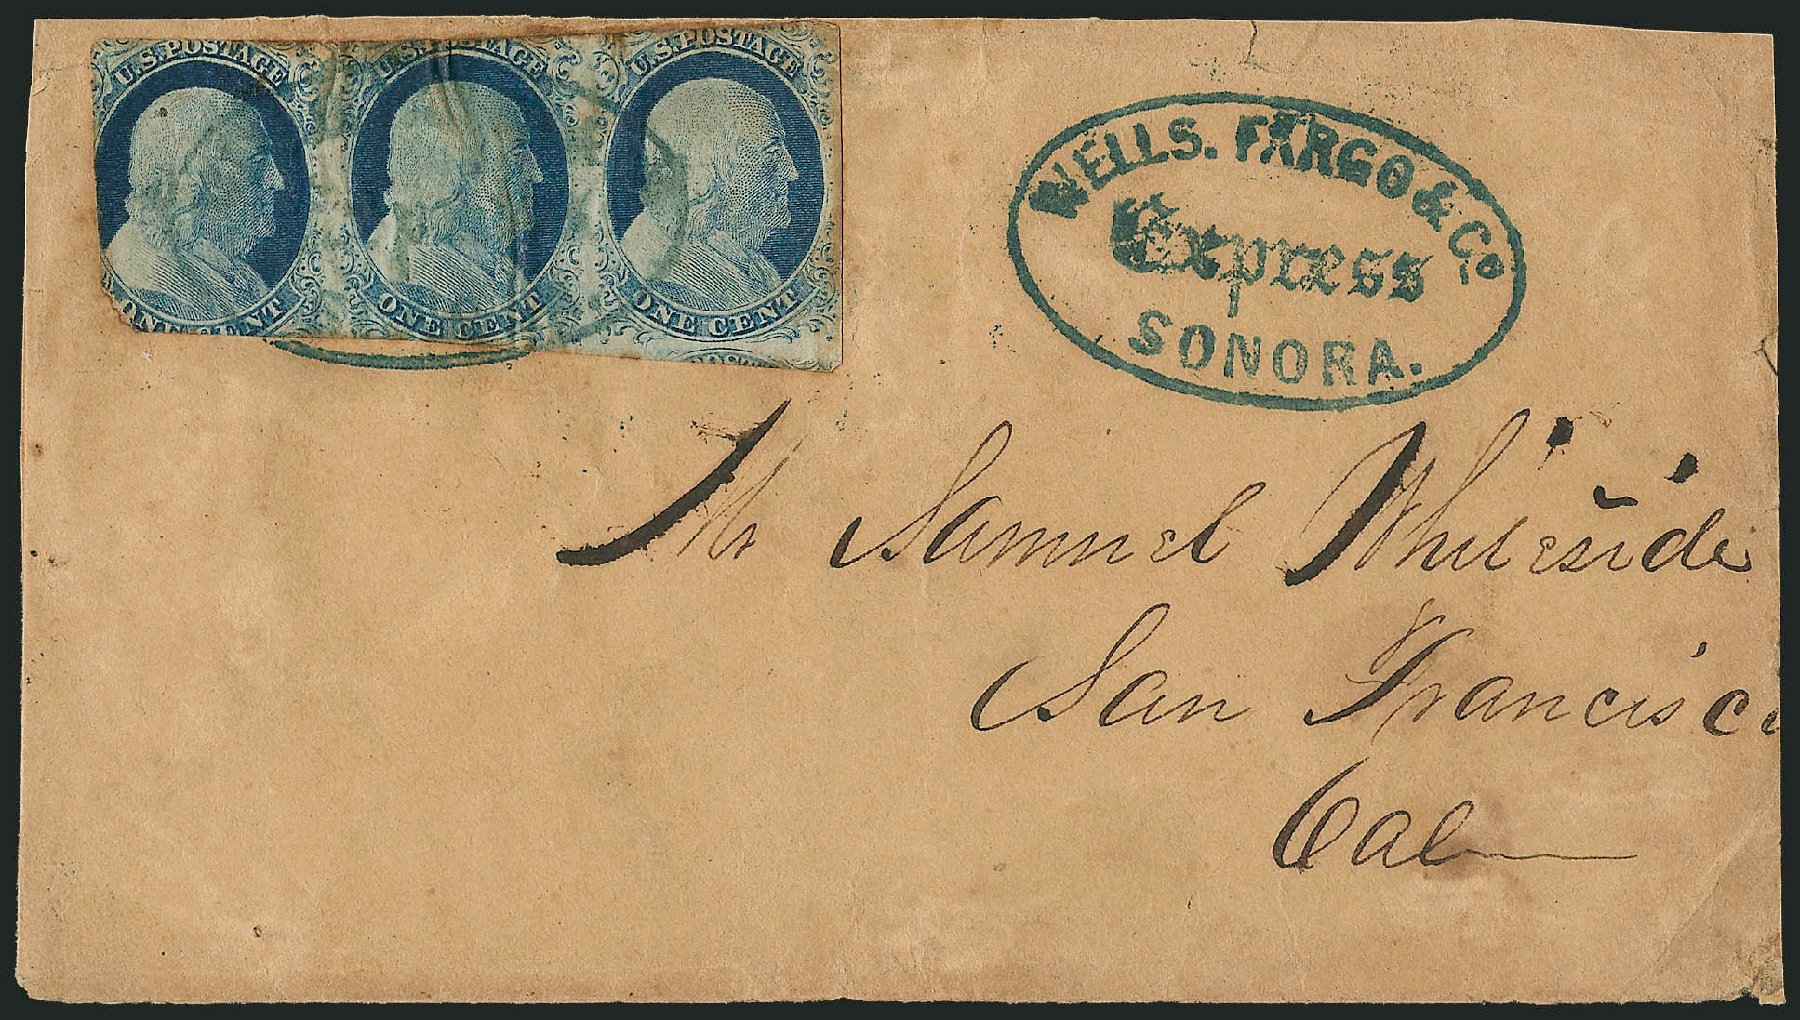 U.S. POSTAGE U.S. POSTAGE U.S. POSTAGE
ONE CENT ONE CENT ONE CENT
WELLS. FARGO & Cº
Express
SONORA.
Mr Samuel Whiteside
San Francisco
Cal